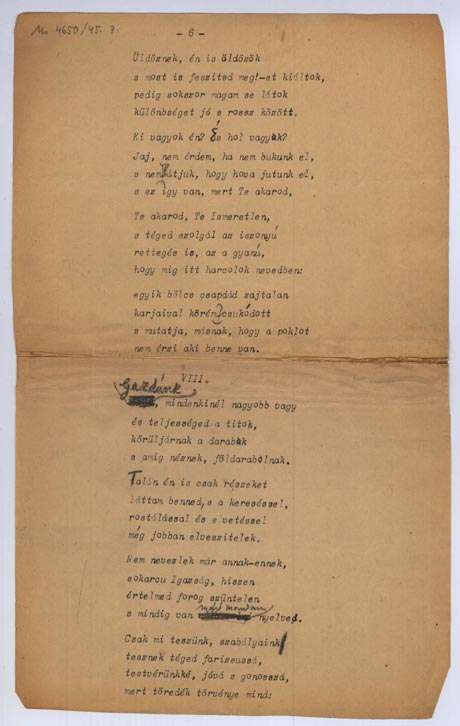 M. 4650/45. 7.
- 6 -
Üldöznek, én is üldözök
s most is feszitsd meg!-et kiáltok,
pedig sokszor magam se látok
különbséget jó s rossz között.
Ki vagyok én? És hol vagyok?
Jaj, nem érdem, ha nem bukunk el,
s nem látjuk, hogy hova jutunk el,
s ez igy van, mert Te akarod,
Te akarod, Te Ismeretlen,
s téged szolgál az iszonyú
rettegés is, az a gyanú,
hogy mig itt harcolok nevedben:
egyik bölcs csapdád zajtalan
karjaival körém csukódott
s mutatja, másnak, hogy a poklot
nem érzi aki benne van.
VIII.
Gazdánk
, mindenkinél nagyobb vagy
és teljességed a titok,
körüljárnak a darabok
s amig néznek, földarabolnak.
Talán én is csak részeket
láttam benned, s a kereséssel,
rostálással és elvetéssel
még jobban elveszitelek.
Nem nevezlek már annak-ennek,
sokarcu Igazság, hiszen
értelmed forog szüntelen
s mindig van más mondani nyelved.
Csak mi teszünk, szabályaink
tesznek téged farizeussá,
testvérünkké, jóvá s gonosszá,
mert töredék törvénye mind: